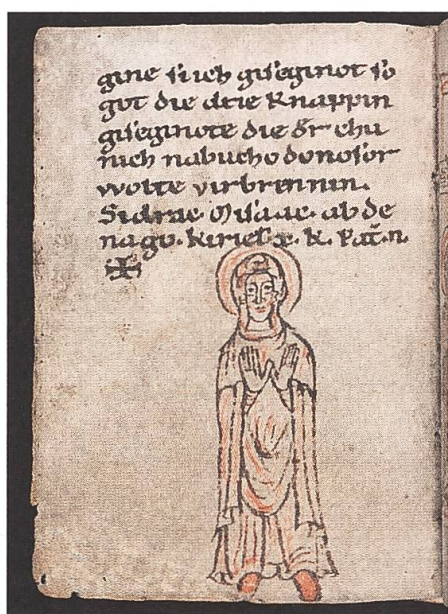 gine si ueh giseginot so
got die drie knappin
giseginote die der chu
nich nabuchodonosor
wolte virbrennin.
Sidrac. Misaac. abde
nago. kiriel. x. k. Pat. n.